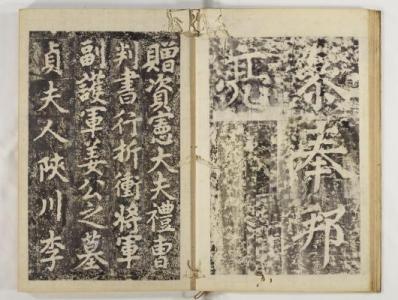 奉邦
贈資憲大夫禮曹
判書行折衝將軍
副護軍姜公之墓
貞夫人陜川李